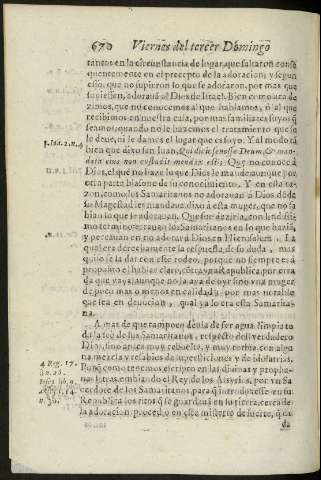 670 Viernes del tercer Domingo
tantos en la circunstancia de lugar, que faltaron conse
quentemente en el precepto de la adoracion; y segun
esso, que no supieron lo que se adoraron, por mas que
supiessen, adorauã al Dios de Israel. Bien como acà de
zimos, que no conocemos al que hablamos, ò al que
recibimos en nuestra casa, por mas familiares suyos q̃
seamos, quando no le hazemos el tratamiento que se
le deue, ni le damos el lugar que es suyo. Y al modo tã
1. Ioã. 2. n. 4
bien que dixo san Iuan, Qui dicit se nosse Deum, & man-
data eius non custodit mendax est: Que no conoce à
Dios, el que no haze lo que Dios le manda aunque por
otra parte blasone de su conocimiento. Y en esta ra-
zon, como los Samaritanos no adorauan à Dios dõde
su Magestad les mandaua, dixo à esta muger, que no sa
bian lo que se adorauan. Que fue dezirla, con lindissi-
mo termino, errauan los Samaritanos en lo que hazia,
y pecauan en no adorar à Dios en Hierosolima. La
qual era derechamente la respuesta, de su duda, mas
quiso se la dar con este rodeo, porque no siempre es à
proposito el hablar claro,
da que vaya, aunque no la aya de oyr sino vna muger
de poco mas ò menos en calidad; por mas notable
que sea en deuocion, qual ya lo era esta Samarita-
na.
A mas de que tampoco deuia de ser agua limpia to
da la fee de los Samaritanos, respecto del verdadero
Dios, sino agua muy rebuelta, y muy turbia con algu
na mezcla y resabios de supersticiones y de idolatrias.
4. Reg. 17.
Pues como tenemos escripto en las diuinas y propha-
nas letras, embiando el Rey de los Assyrios, por vn Sa
cerdote de los Samaritanos, para q̃ introduxesse en su
Republica los ritos q̃ se guardauã en su tierra, cerca de
la adoracion, procedio en este misterio de suerte, q̃ da
da